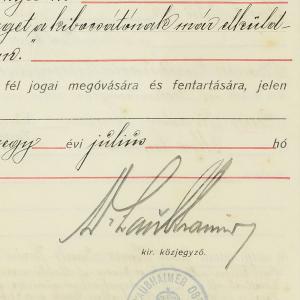 éget a kibocsátónak már elküld-
fél jogai megóvására és fentartására, jelen
egy évi július hó
Dr Laubhaimer
kir. közjegyző.
LAUBHAIMER